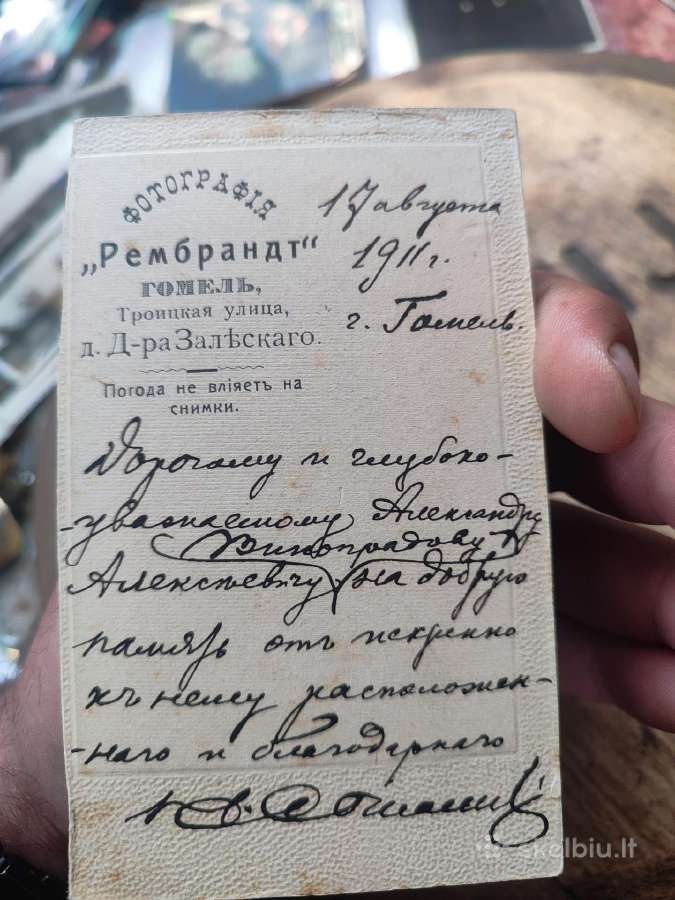 ФОТОГРАФІЯ
„Рембрандт“
ГОМЕЛЬ,
Троицкая улица,
д. Д-ра Залѣскаго.
Погода не вліяетъ на
снимки.
17 августа
1911 г.
г. Гомель.
Дорогому и глубоко-
-уважаемому Александру
Виноградову
Алексѣевичу на добрую
память отъ искренно
къ нему расположен-
-наго и благодарнаго
skelbiu.lt